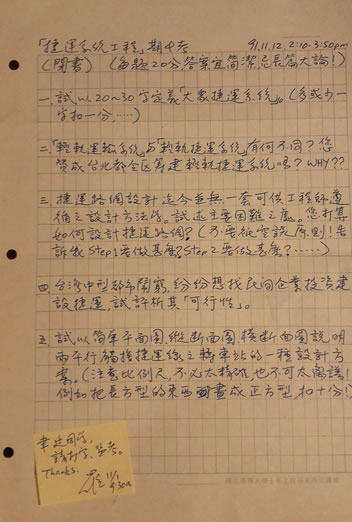 「捷運系統工程」期中考 91.11.12. 2:10-3:50pm
(開書) (每題20分,答案宜简潔,忌長篇大論!)
一.試以20~30字定義"大眾捷運系統"。(多或少一
字扣一分.....)
二.「輕軌運輸系統」与「輕軌捷運系統」有何不同? 您
贊成台北都会区籌建輕軌捷運系統嗎? WHY??
三.捷運路網設計迄今並無一套可供工程師遵
循之設計方法學。試述主要困難之處。您打算
如何設計捷運路網? (不要紙空談原則!告
訴我Step 1要做甚麼? Step 2要做甚麼? .....)
四.台湾中型都市鬧窮,紛紛想找民间企業投资建
設捷運,試評析其「可行性」。
五.試以简单平面圖,縱断面圖,横断面圖說明
兩平行捷運線之轉車站的一種設計方
案。(注意比例尺,不必太精確,也不可太離譜!
例如把長方型的東西畫成正方型,扣十分!)
同学,
請打字,參考。
Thanks.
11/1